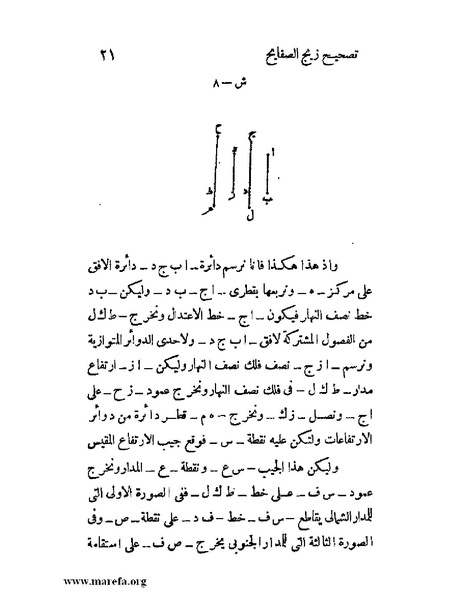 تصحيح زيج الصفايح ٢١
ش — ٨
ح ج ه ا
ط د ز ب
م ل
واذ هذا هكذا فانا نرسم دائرة — ا ب ج د — دائرة الافق
على مركز — ه — ونربعها بقطرى — ا ج — ب د — وليكن — ب د
خط نصف النهار فيكون — ا ج — خط الاعتدال ونخرج — ط ك ل
من الفصول المشتركة لافق — ا ب ج د — ولاحدى الدوائر المتوازية
ونرسم — ا ز ج — نصف فلك نصف النهار وليكن — ا ز — ارتفاع
مدار — ط ك ل — فى فلك نصف النهار ونخرج عمود — ز ح — على
ا ج — ونصل — ز ك — ونخرج — ه م — قطر دائرة من دوائر
الارتفاعات ولتكن عليه نقطة — س — فوقع جيب الارتفاع المقيس
وليكن هذا الجيب — س ع — ونقطة — ع — المدار ونخرج
عمود — س ف — على خط — ط ك ل — ففى الصورة الاولى التى
للمدار الشمالى يقاطع — س ف — خط — ف د — على نقطة — ص — وفى
الصورة الثالثة التى للمدار الجنوبى يخرج — ص ف — على استقامة
www.marefa.org